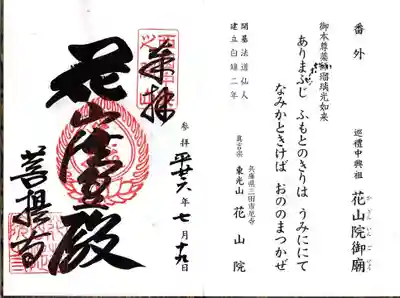 番外　巡禮中興祖　花山院御廟
御本尊薬師瑠璃光如来
ありまふじ　ふもとのきりは　うみににて
なみかときけば　おののまつかぜ
開基法道仙人
建立白雉二年
兵庫県三田市尼寺
真言宗　東光山　花山院
参拝　平廿六年七月十九日
奉拝
花山法皇殿
菩提寺